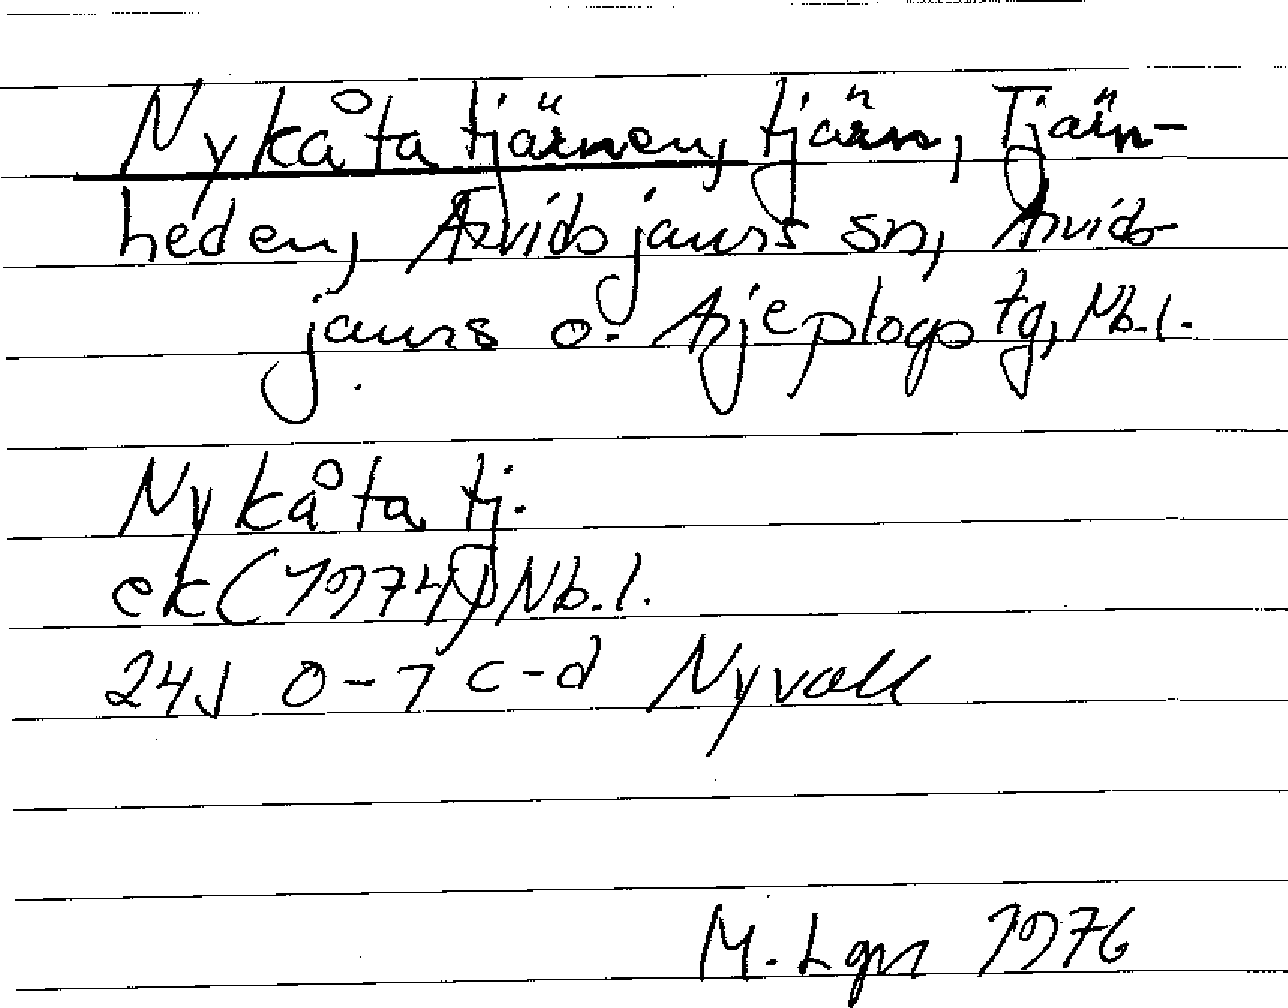 Nykåtatjärnen, tjärn, Tjärn-
heden, Arvidsjaurs sn, Arvids-
jaurs o. Arjeplogs tg, Nb.l.
Nykåtatj.
ek (1974) Nb.l.
24J 0-1 c-d Nyvall
M. Lgn 1976